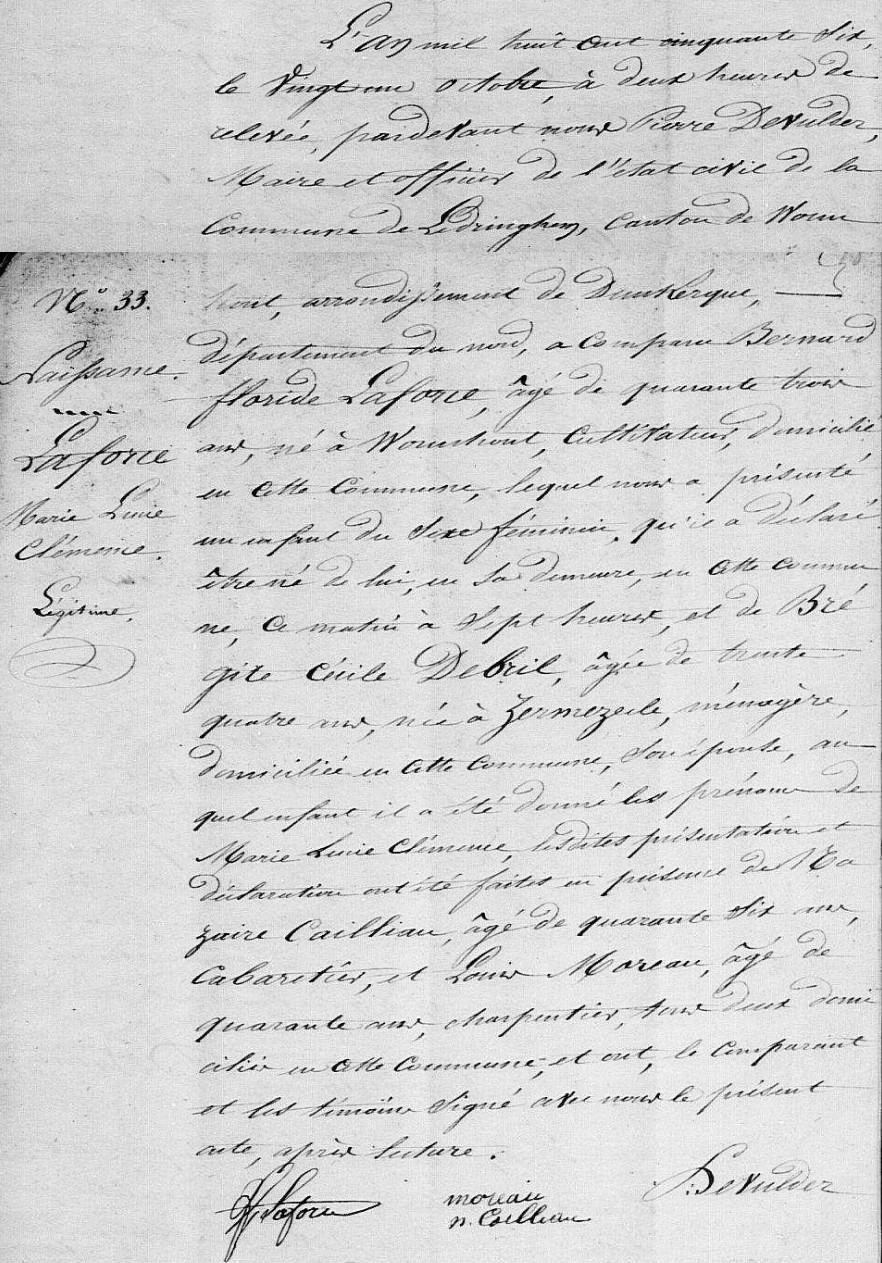 L'an mil huit cent cinquante six,
le vingt un octobre, à deux heures de
relevée, pardevant nous Pierre Devulder,
Maire et officier de l'état civil de la
Commune de Ledringhem, Canton de Worm
hout, arrondissement de Dunkerque,
département du nord, a comparu Bernard
floride Laforce, âgé de quarante trois
ans, né à Wormhout, Cultivateur, domicilié
en cette Commune, lequel nous a présenté
un enfant du Sexe féminin, qu'il a déclaré
être né de lui, en Sa demeure, en cette commu
ne, ce matin à Sept heures, et de Bré
gite Cécile Debril, âgée de trente
quatre ans, née à Zermezeele, ménagère,
domiciliée en cette Commune, Son épouse, au
quel enfant il a été donné les prénoms de
Marie Lucie Clémence, lesdites présentation et
déclaration ont été faites en présence de Na
zaire Cailliau, âgé de quarante Six ans,
Cabaretier, et Louis Moreau, âgé de
quarante ans, charpentier, tous deux domi
ciliés en cette Commune, et ont, le Comparant
et les témoins Signé avec nous le présent
acte, après lecture.
N.° 33.
Naissance.
Laforce
Marie Lucie
Clémence.
Légitime.
Laforce
moreau
n. Cailliau
Devulder